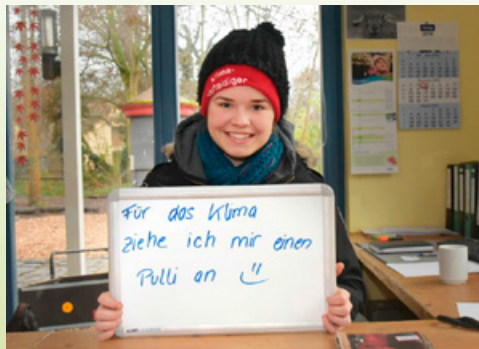 Klima-
Für das Klima
ziehe ich mir einen
Pulli an